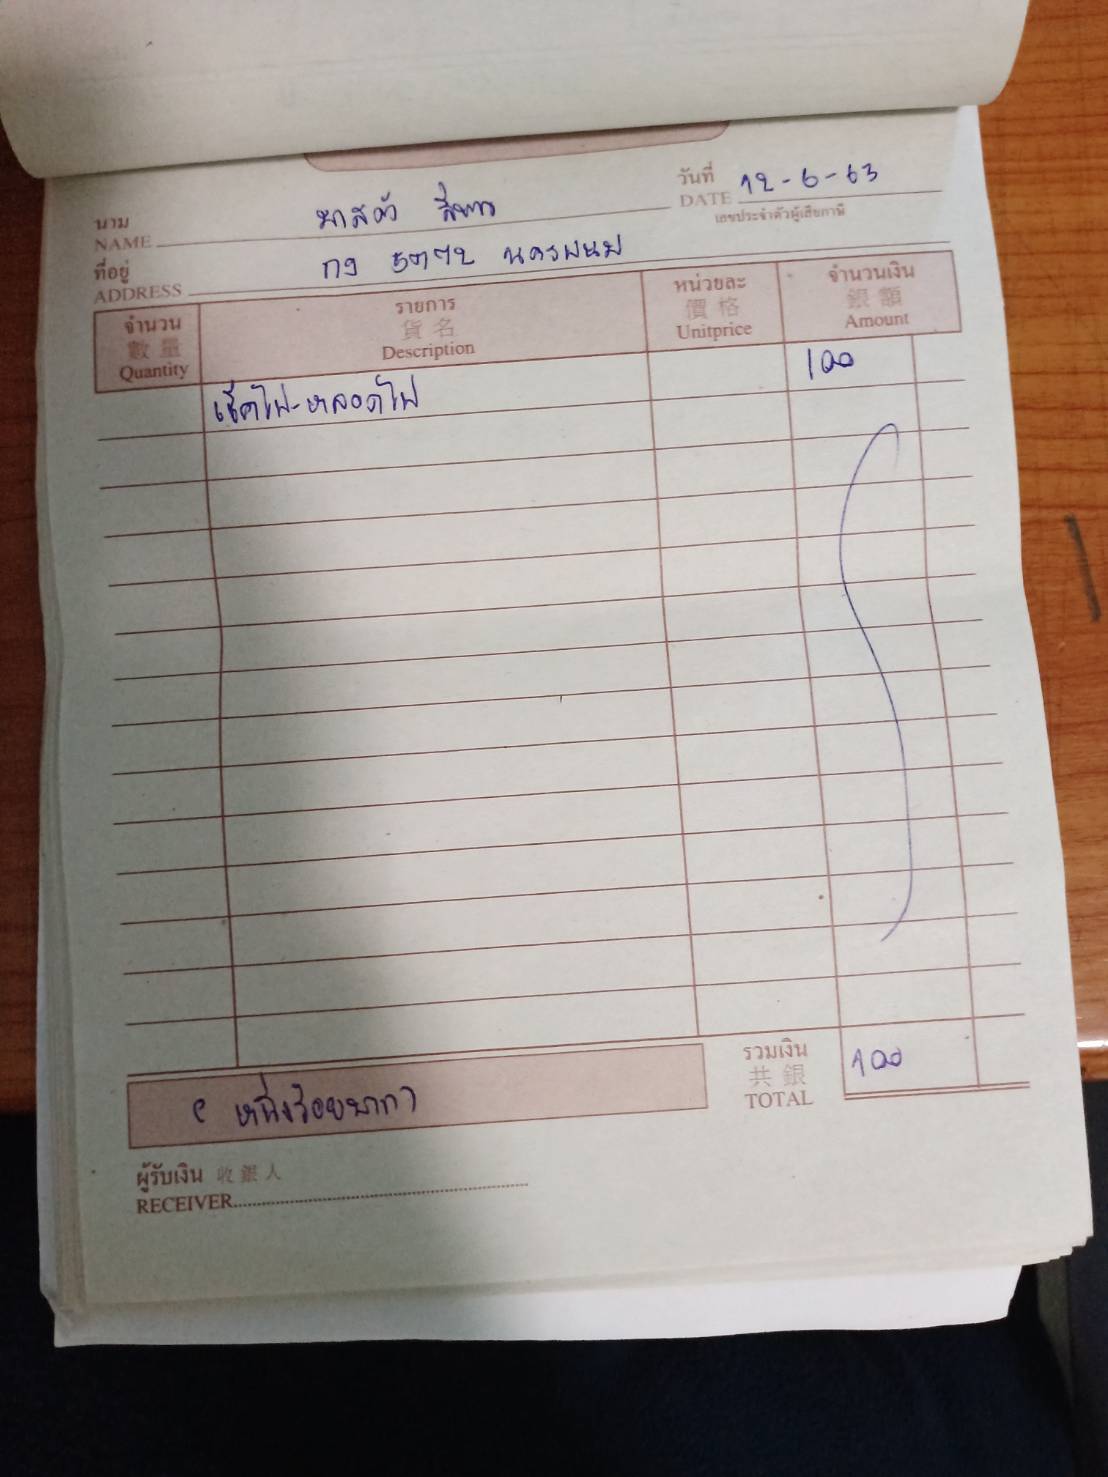 วันที่
DATE 12-6-63
เลขประจำตัวผู้เสียภาษี
นาม
NAME
ที่อยู่
ADDRESS กง 5772 นครพนม
จำนวน 數量 Quantity
รายการ 貨名 Description
หน่วยละ 價格 Unitprice
จำนวนเงิน 銀額 Amount
เช็คไฟ-หลอดไฟ 100
รวมเงิน
共銀
TOTAL 100
หนึ่งร้อยบาท
ผู้รับเงิน 收銀人
RECEIVER